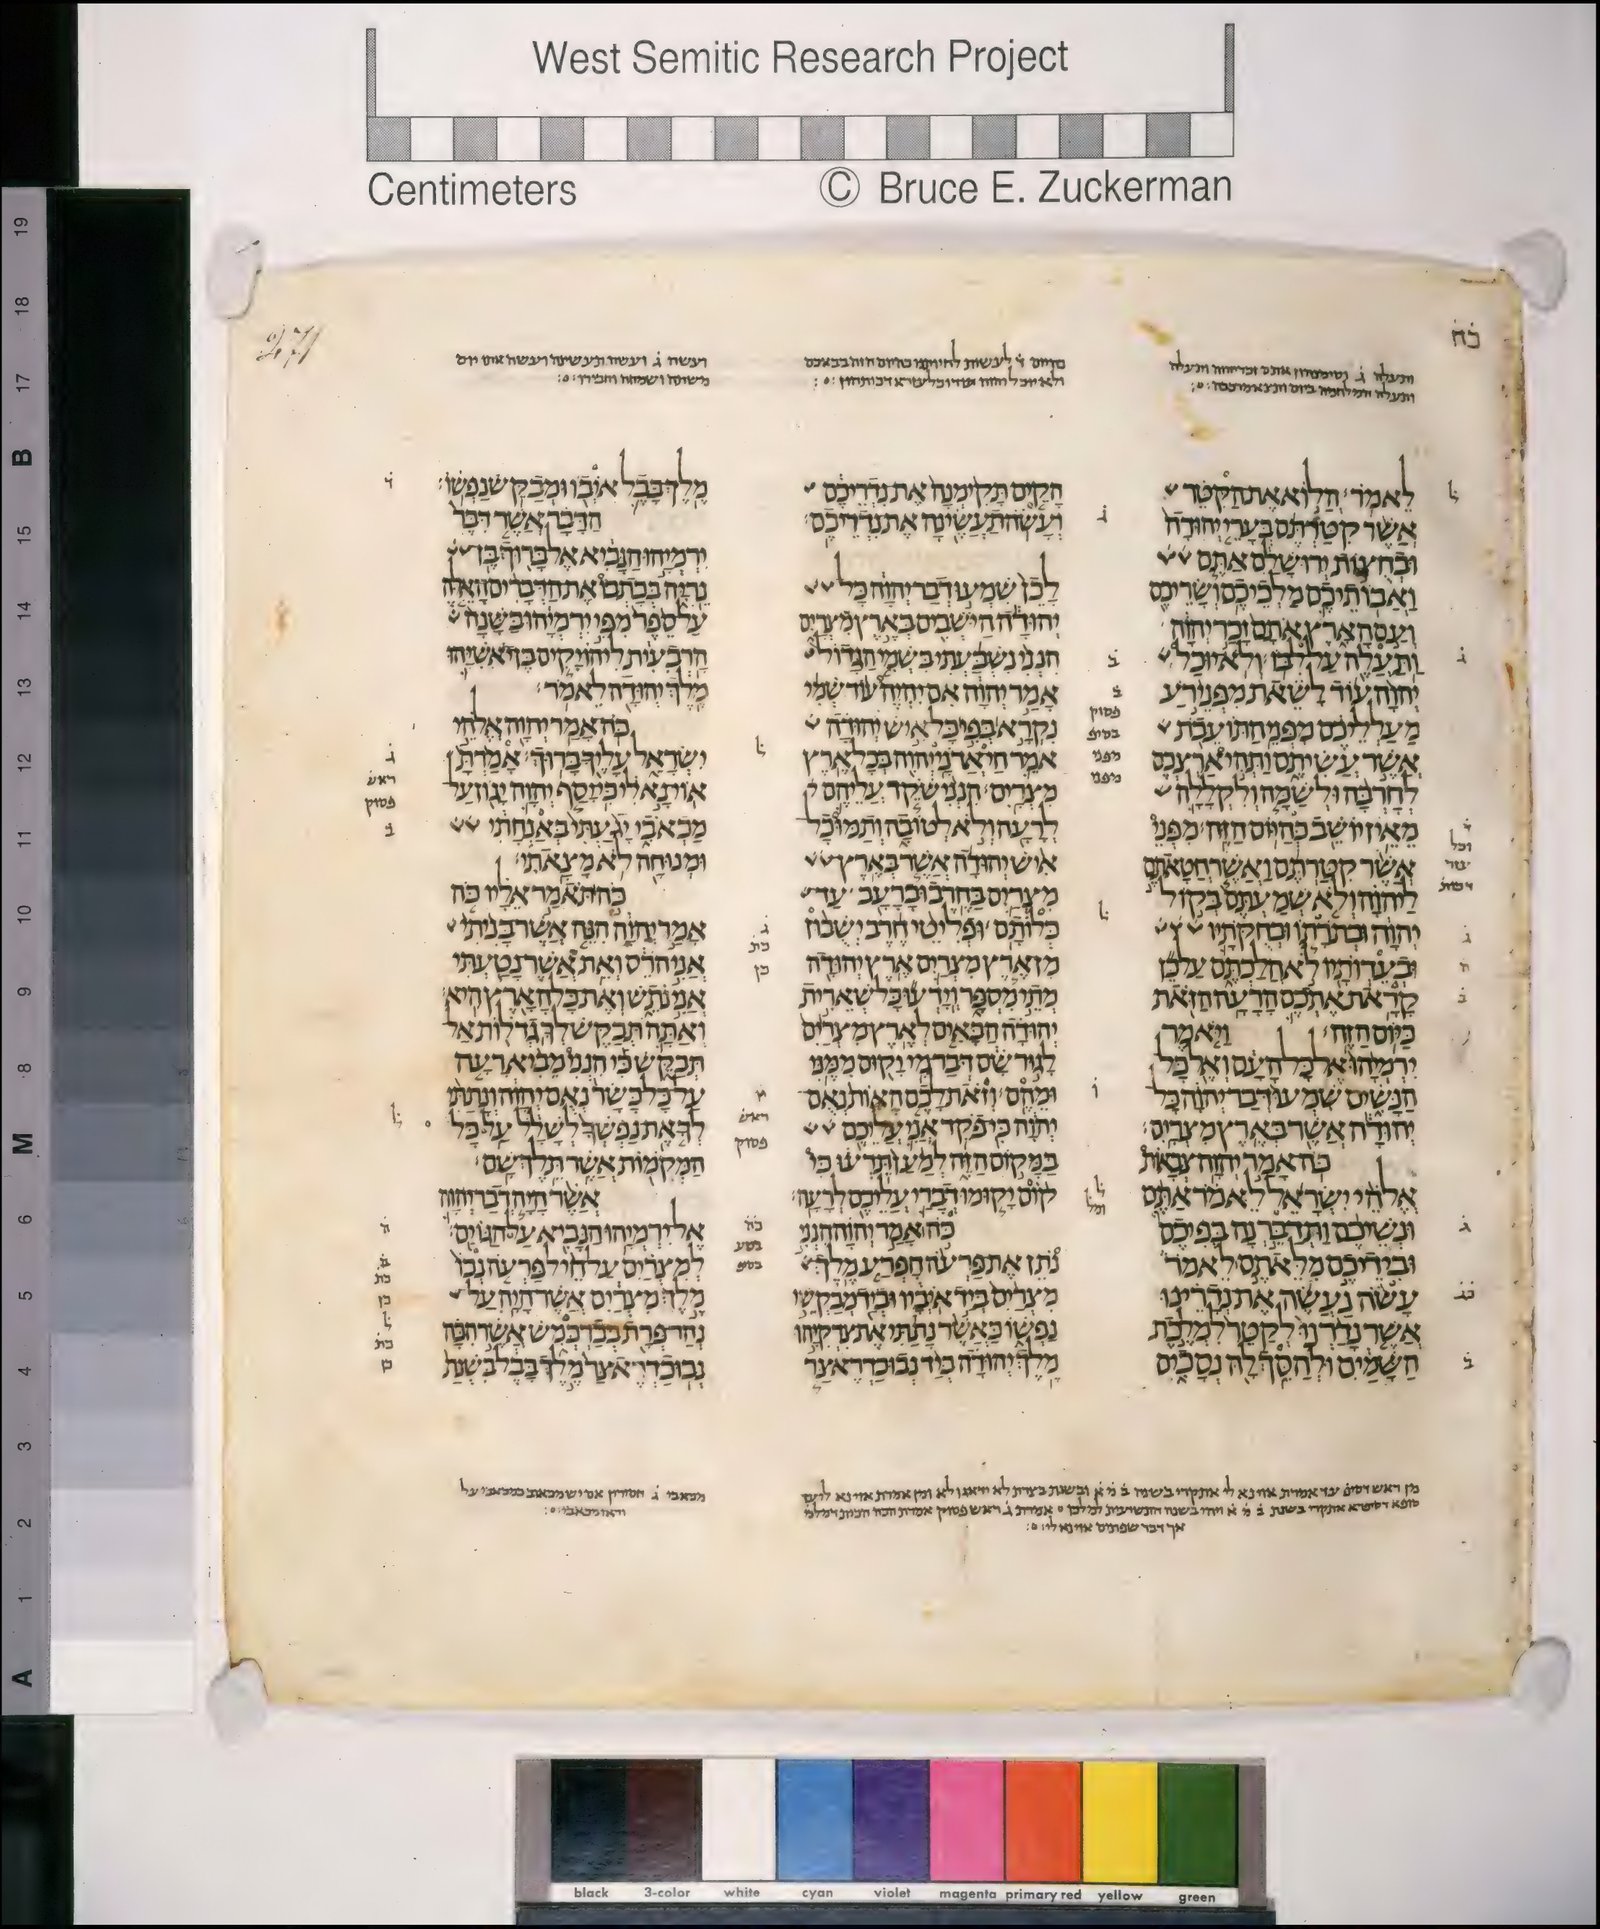 West Semitic Research Project
Centimeters © Bruce E. Zuckerman
271
כח
לאמר הלוא את הקטר
אשר קטרתם בערי יהודה
ובחצות ירושלם אתם
ואבותיכם מלכיכם ושריכם
ועם הארץ אתם זכר יהוה
ותעלה על לבו ולא יוכל
יהוה עוד לשאת מפני רע
מעלליכם מפני התועבת
אשר עשיתם ותהי ארצכם
לחרבה ולשמה ולקללה
מאין יושב כהיום הזה מפני
אשר קטרתם ואשר חטאתם
ליהוה ולא שמעתם בקול
יהוה ובתרתו ובחקתיו
ובעדותיו לא הלכתם על כן
קראת אתכם הרעה הזאת
כיום הזה ויאמר
ירמיהו אל כל העם ואל כל
הנשים שמעו דבר יהוה כל
יהודה אשר בארץ מצרים
כה אמר יהוה צבאות
אלהי ישראל לאמר אתם
ונשיכם ותדברנה בפיכם
ובידיכם מלאתם לאמר
עשה נעשה את נדרינו
אשר נדרנו לקטר למלכת
השמים ולהסך לה נסכים
הקים תקימנה את נדריכם
ועשה תעשינה את נדריכם
לכן שמעו דבר יהוה כל
יהודה הישבים בארץ מצרים
הנני נשבעתי בשמי הגדול
אמר יהוה אם יהיה עוד שמי
נקרא בפי כל איש יהודה
אמר חי אדני יהוה בכל ארץ
מצרים הנני שקד עליהם
לרעה ולא לטובה ותמו כל
איש יהודה אשר בארץ
מצרים בחרב וברעב עד
כלותם ופליטי חרב ישבון
מן ארץ מצרים ארץ יהודה
מתי מספר וידעו כל שארית
יהודה הבאים לארץ מצרים
לגור שם דבר מי יקום ממני
ומהם וזאת לכם האות נאם
יהוה כי פקד אני עליכם
במקום הזה למען תדעו כי
קום יקומו דברי עליכם לרעה
כה אמר יהוה הנני
נתן את פרעה חפרע מלך
מצרים ביד איביו וביד מבקשי
נפשו כאשר נתתי את צדקיהו
מלך יהודה ביד נבוכדראצר
מלך בבל איבו ומבקש נפשו
הדבר אשר דבר
ירמיהו הנביא אל ברוך בן
נריה בכתבו את הדברים האלה
על ספר מפי ירמיהו בשנה
הרבעית ליהויקים בן יאשיהו
מלך יהודה לאמר
כה אמר יהוה אלהי
ישראל עליך ברוך אמרת
אוי נא לי כי יסף יהוה יגון על
מכאבי יגעתי באנחתי
ומנוחה לא מצאתי
כה תאמר אליו כה
אמר יהוה הנה אשר בניתי
אני הרס ואת אשר נטעתי
אני נתש ואת כל הארץ היא
ואתה תבקש לך גדלות אל
תבקש כי הנני מביא רעה
על כל בשר נאם יהוה ונתתי
לך את נפשך לשלל על כל
המקמות אשר תלך שם
אשר היה דבר יהוה
אל ירמיהו הנביא על הגוים
למצרים על חיל פרעה נכו
מלך מצרים אשר היה על
נהר פרת בכרכמש אשר הכה
נבוכדראצר מלך בבל בשנת
19
18
17
B
15
14
13
12
11
10
9
8
M
6
5
4
3
2
1
A
black 3-color white cyan violet magenta primary red yellow green